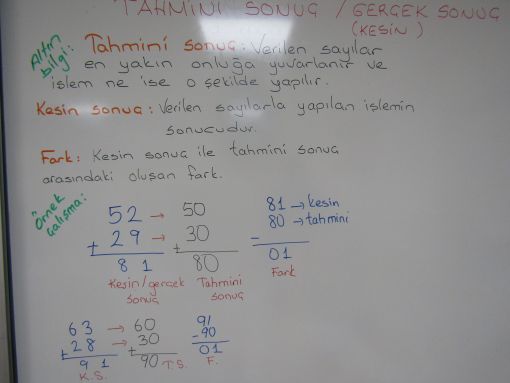 TAHMİNİ SONUÇ / GERÇEK SONUÇ
(KESİN)
Altın bilgi: Tahmini sonuç: Verilen sayılar
en yakın onluğa yuvarlanır ve
işlem ne ise o şekilde yapılır.
Kesin sonuç: Verilen sayılarla yapılan işlemin
sonucudur.
Fark: Kesin sonuç ile tahmini sonuç
arasındaki oluşan fark.
Örnek çalışma:
52 → 50 81 → kesin
+ 29 → + 30 - 80 → tahmini
81 80 01
Kesin/gerçek sonuç Tahmini sonuç Fark
63 → 60 91
+ 28 → + 30 - 90
91 90 01
K.S. T.S. F.